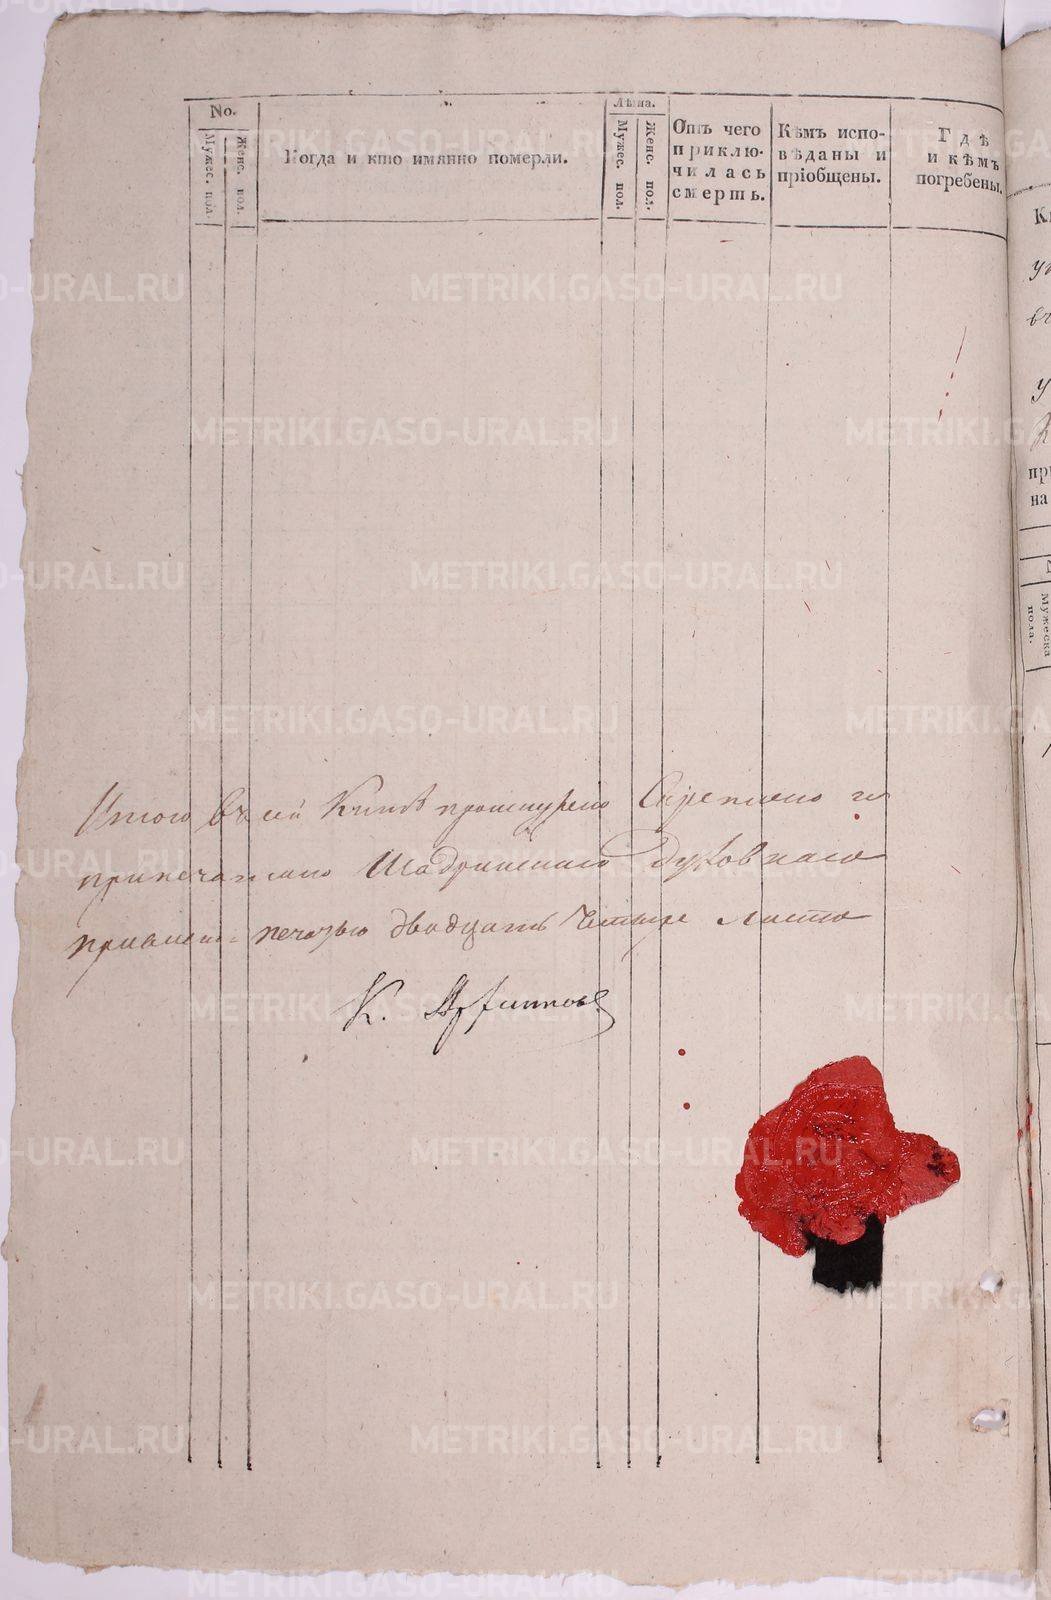 No.
Мужес. пол.
Женс. пол.
Когда и кто имянно померли.
Лѣта.
Мужес. пол.
Женс. пол.
Отъ чего
приклю-
чилась
смерть.
Кѣмъ испо-
вѣданы и
пріобщены.
Гдѣ
и кѣмъ
погребены.
Итого въ сей Книгѣ прошнурено Скреплено и
припечатано Шадринскаго Духовнаго
правленія печатью двадцать Четыре листа
К.
METRIKI.GASO-URAL.RU
Мужеска
пола.